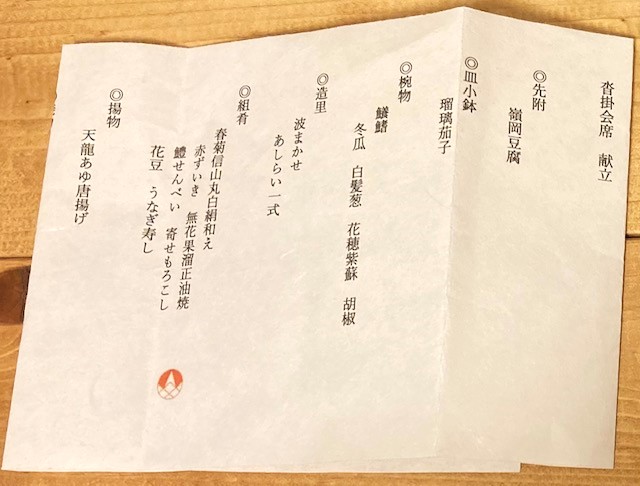 沓掛会席　献立
◎先附
嶺岡豆腐
◎皿小鉢
瑠璃茄子
◎椀物
鱶鰭
冬瓜　白髪葱　花穂紫蘇　胡椒
◎造里
波まかせ
あしらい一式
◎組肴
春菊信山丸白絹和え
赤ずいき　無花果溜正油焼
鱧せんべい　寄せもろこし
花豆　うなぎ寿し
◎揚物
天龍あゆ唐揚げ